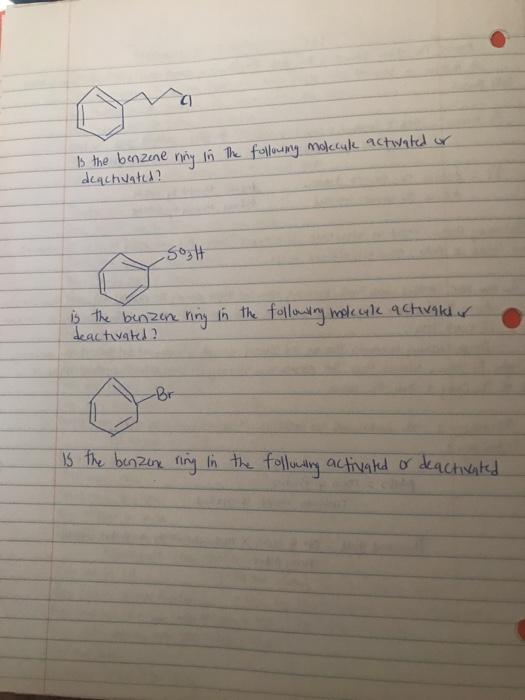 Cl
Is the benzene ring in the following molecule activated or
deactivated?
SO3H
is the benzene ring in the following molecule activated or
deactivated?
Br
Is the benzene ring in the following activated or deactivated